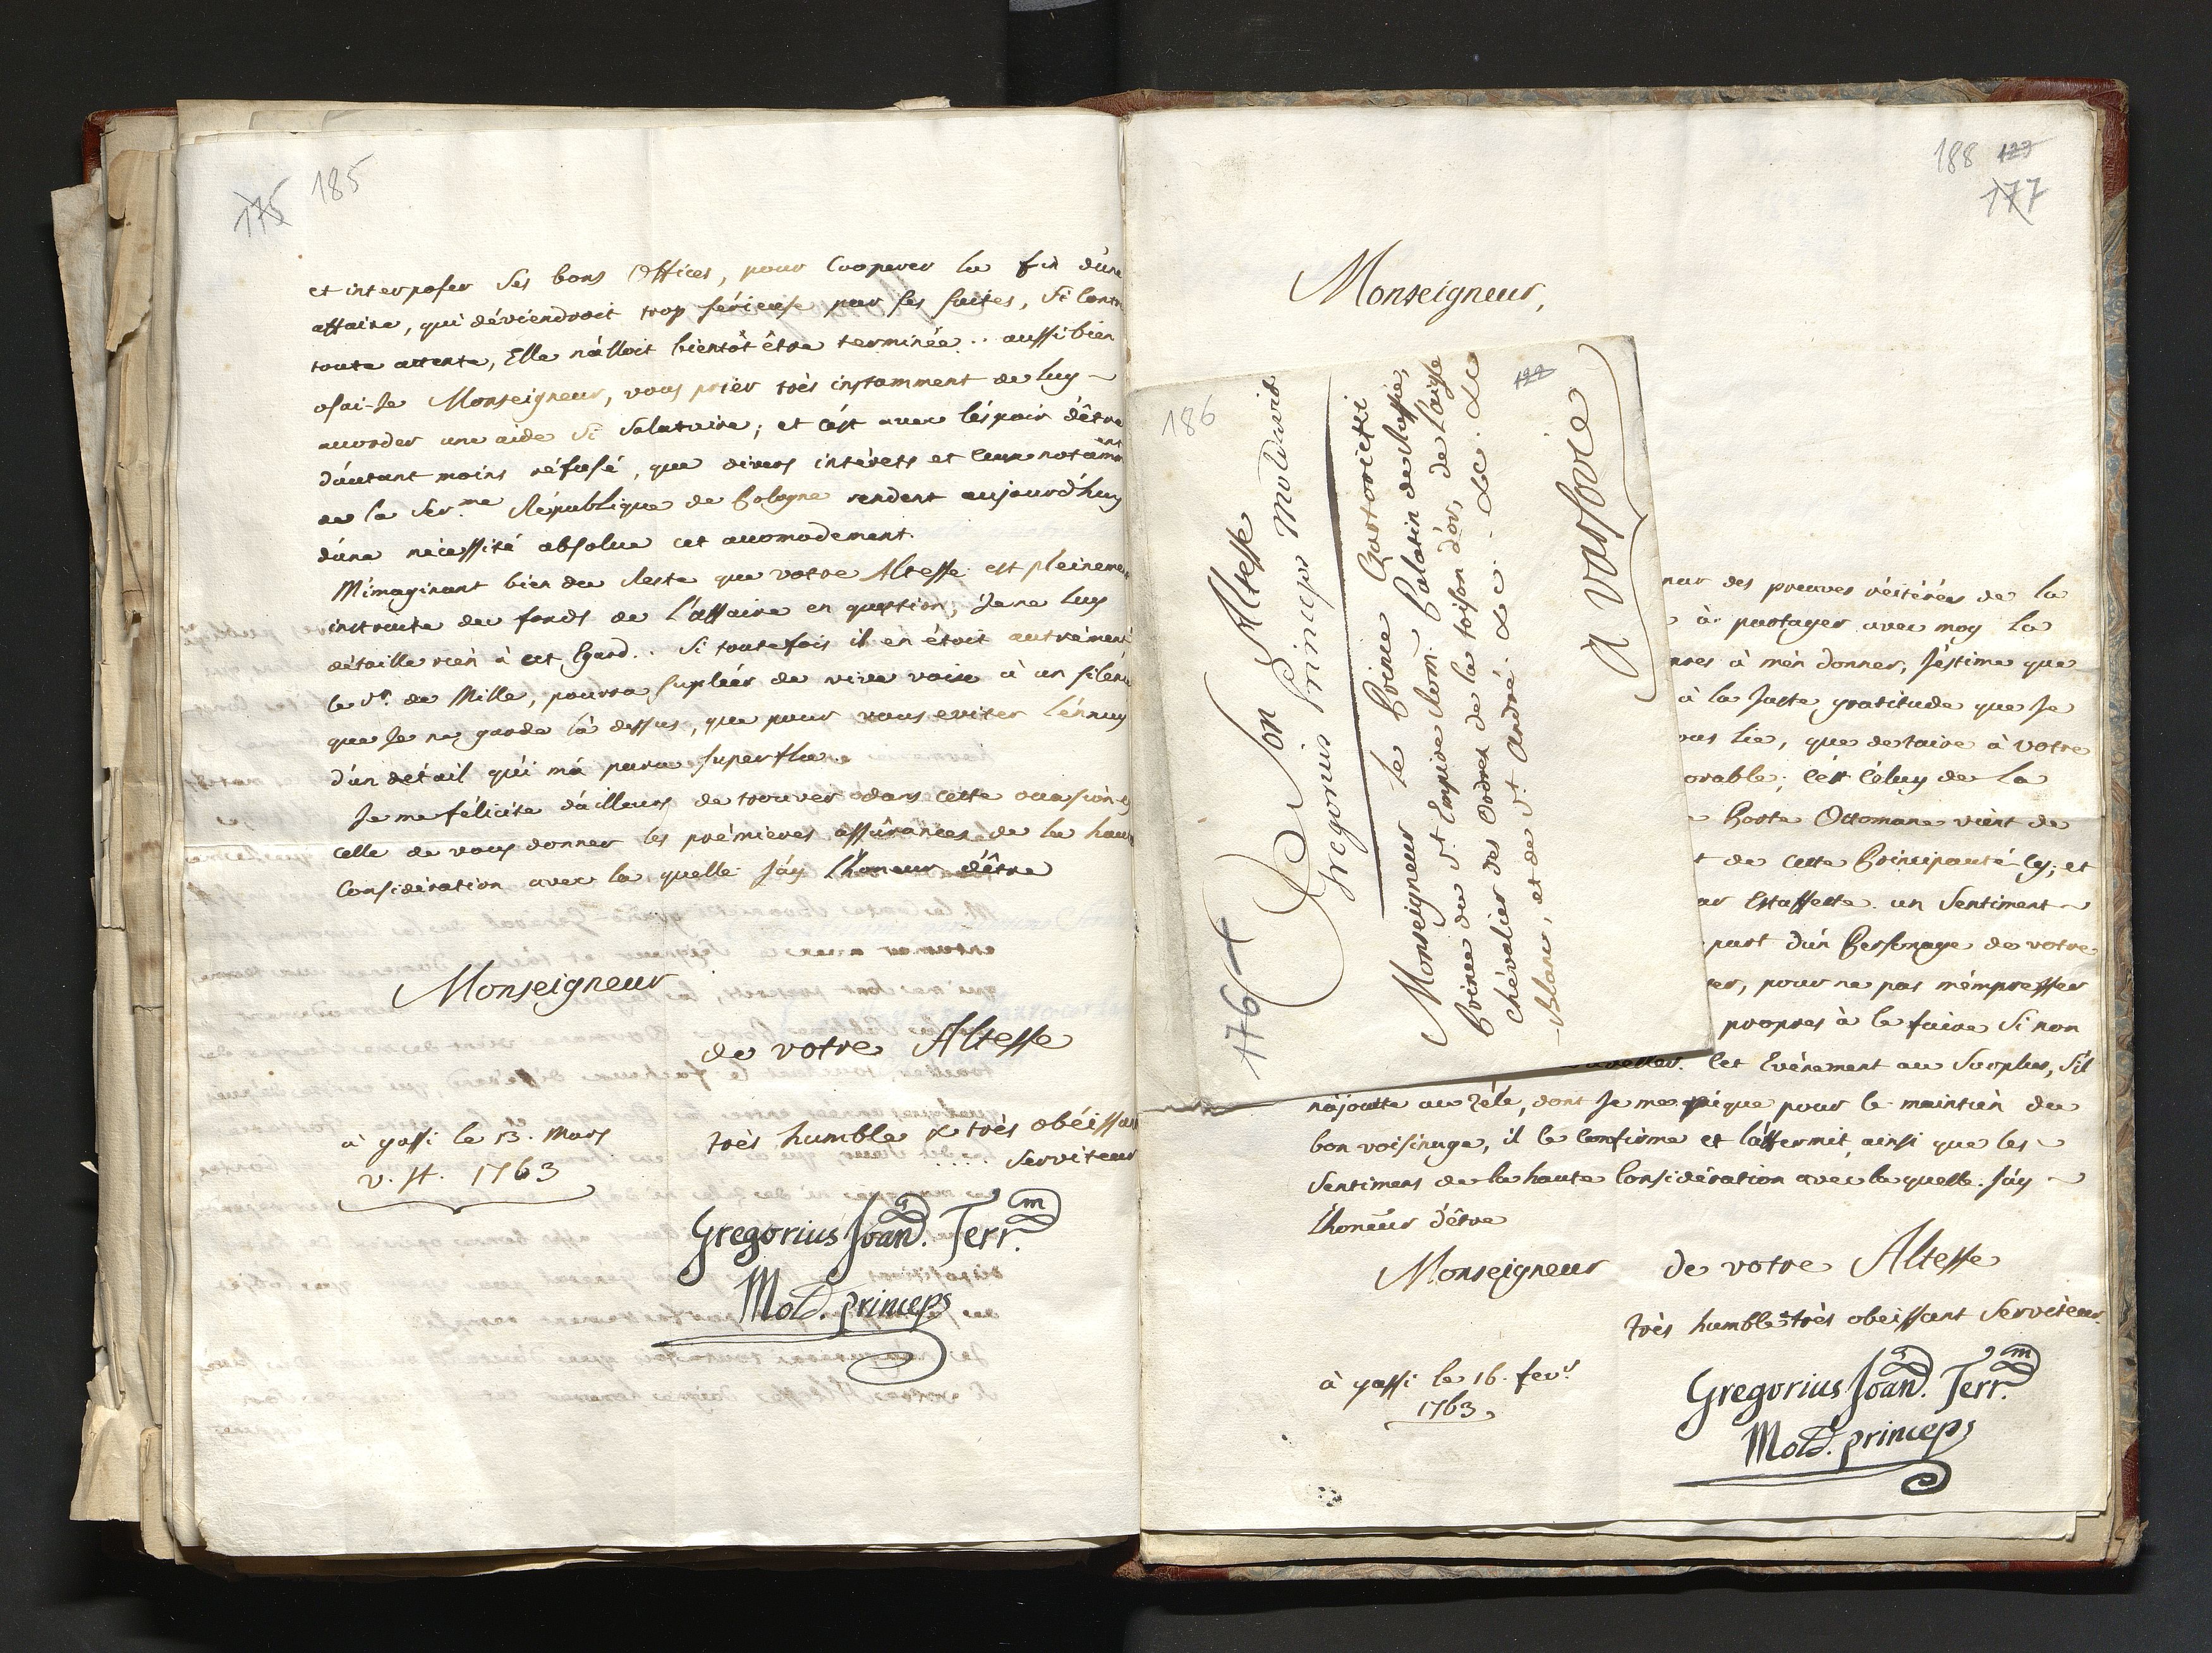 175 185
et interposer Ses bons Offices, pour Cooperer la fin d'une
affaire, qui déviendroit trop sérieuse par ses suites, Si contre
toute attente, Elle n'alloit bientôt être terminée.. aussi bien
osai-Je Monseigneur, vous prier très instamment de luy
accorder une aide Si Salutaire; et c'est avec l'éspoir d'être
d'autant moins réfusé, que divers intérets et ceux notam̄ent
de la Ser.me République de Pologne rendent aujourd'huy
d'une nécessité absolue cet accomodement.
M'imaginant bien du Reste que votre Altesse est pleinement
instruite du fonds de l'affaire en question, Je ne luy
détaille rien à cet Egard.. Si toutefois il en étoit autrément,
le Sr. de Mille, pourra supléér de vive voix à un silence
que Je ne garde là dessus, que pour vous eviter l'énnuy
d'un detail qui m'a paru superflu.
Je me félicite d'ailleurs de trouver dans cette occasion-cy
celle de vous donner les prémieres assûrances de la haute
Considération avec la quelle J'ay l'honeur d'être
Monseigneur
de votre Altesse
très humble & très obéissant
Serviteur
à yassi le 13. Mars
v. st. 1763
Gregorius Joan̄. Terr.m
Mold. princeps
188 123
177
Monseigneur,
186
176
122
A Son Altesse
Gregorius Princeps Moldaviæ
Monseigneur le Prince Czartoricski
Prince du St. Empire Rom. Palatin de Russie,
Chévalier des Ordres de la toison d'or, de l'aigle
Blanc, et de St. André. &c. &c. &c
a varsovie
des preuves réitérées de la
à partager avec moy la
à m'én donner, J'éstime que
à la Juste gratitude que Je
lie, que de taire à votre
c'ést Céluy de la
Porte Ottomane vient de
de cette Principauté-Cy; et
Estaffette un Sentiment
part d'ún Personage de votre
pour ne pas m'émpresser
propres à le faire Si non
Cet Evénement au Surplus, S'il
n'ajoutte au zéle, dont Je me pique pour le maintien du
bon voisinage, il le Confirme et l'affermit, ainsi que les
Sentimens de la haute Considération avec la quelle J'ay
l'honeur d'être
Monseigneur de votre Altesse
très humble & très obeissant Serviteur
à yassi le 16. fevr.
1763
Gregorius Joan̄. Terr.m
Mold. princeps